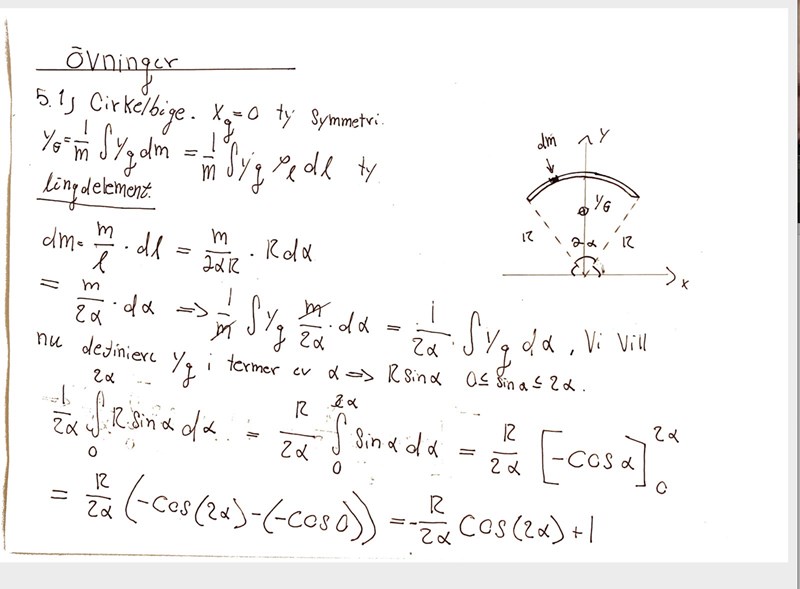 Övninger
5.1) Cirkelbåge. X_g = 0 ty symmetri.
Y_G = 1/m ∫ Y_g dm = 1/m ∫ Y_g ρ_l dl ty
längdelement.
dm = m/l · dl = m/2αR · R dα
= m/2α · dα => 1/m ∫ Y_g m/2α · dα = 1/2α · ∫ Y_g dα, Vi vill
nu definiera Y_g i termer av α => R sin α 0 ≤ sin α ≤ 2α.
1/2α ∫_0^2α R sin α dα = R/2α ∫_0^2α sin α dα = R/2α [-cos α]_0^2α
= R/2α (-cos(2α) - (-cos 0)) = -R/2α cos(2α) + 1
dm
Y
Y_G
R
2α
R
x